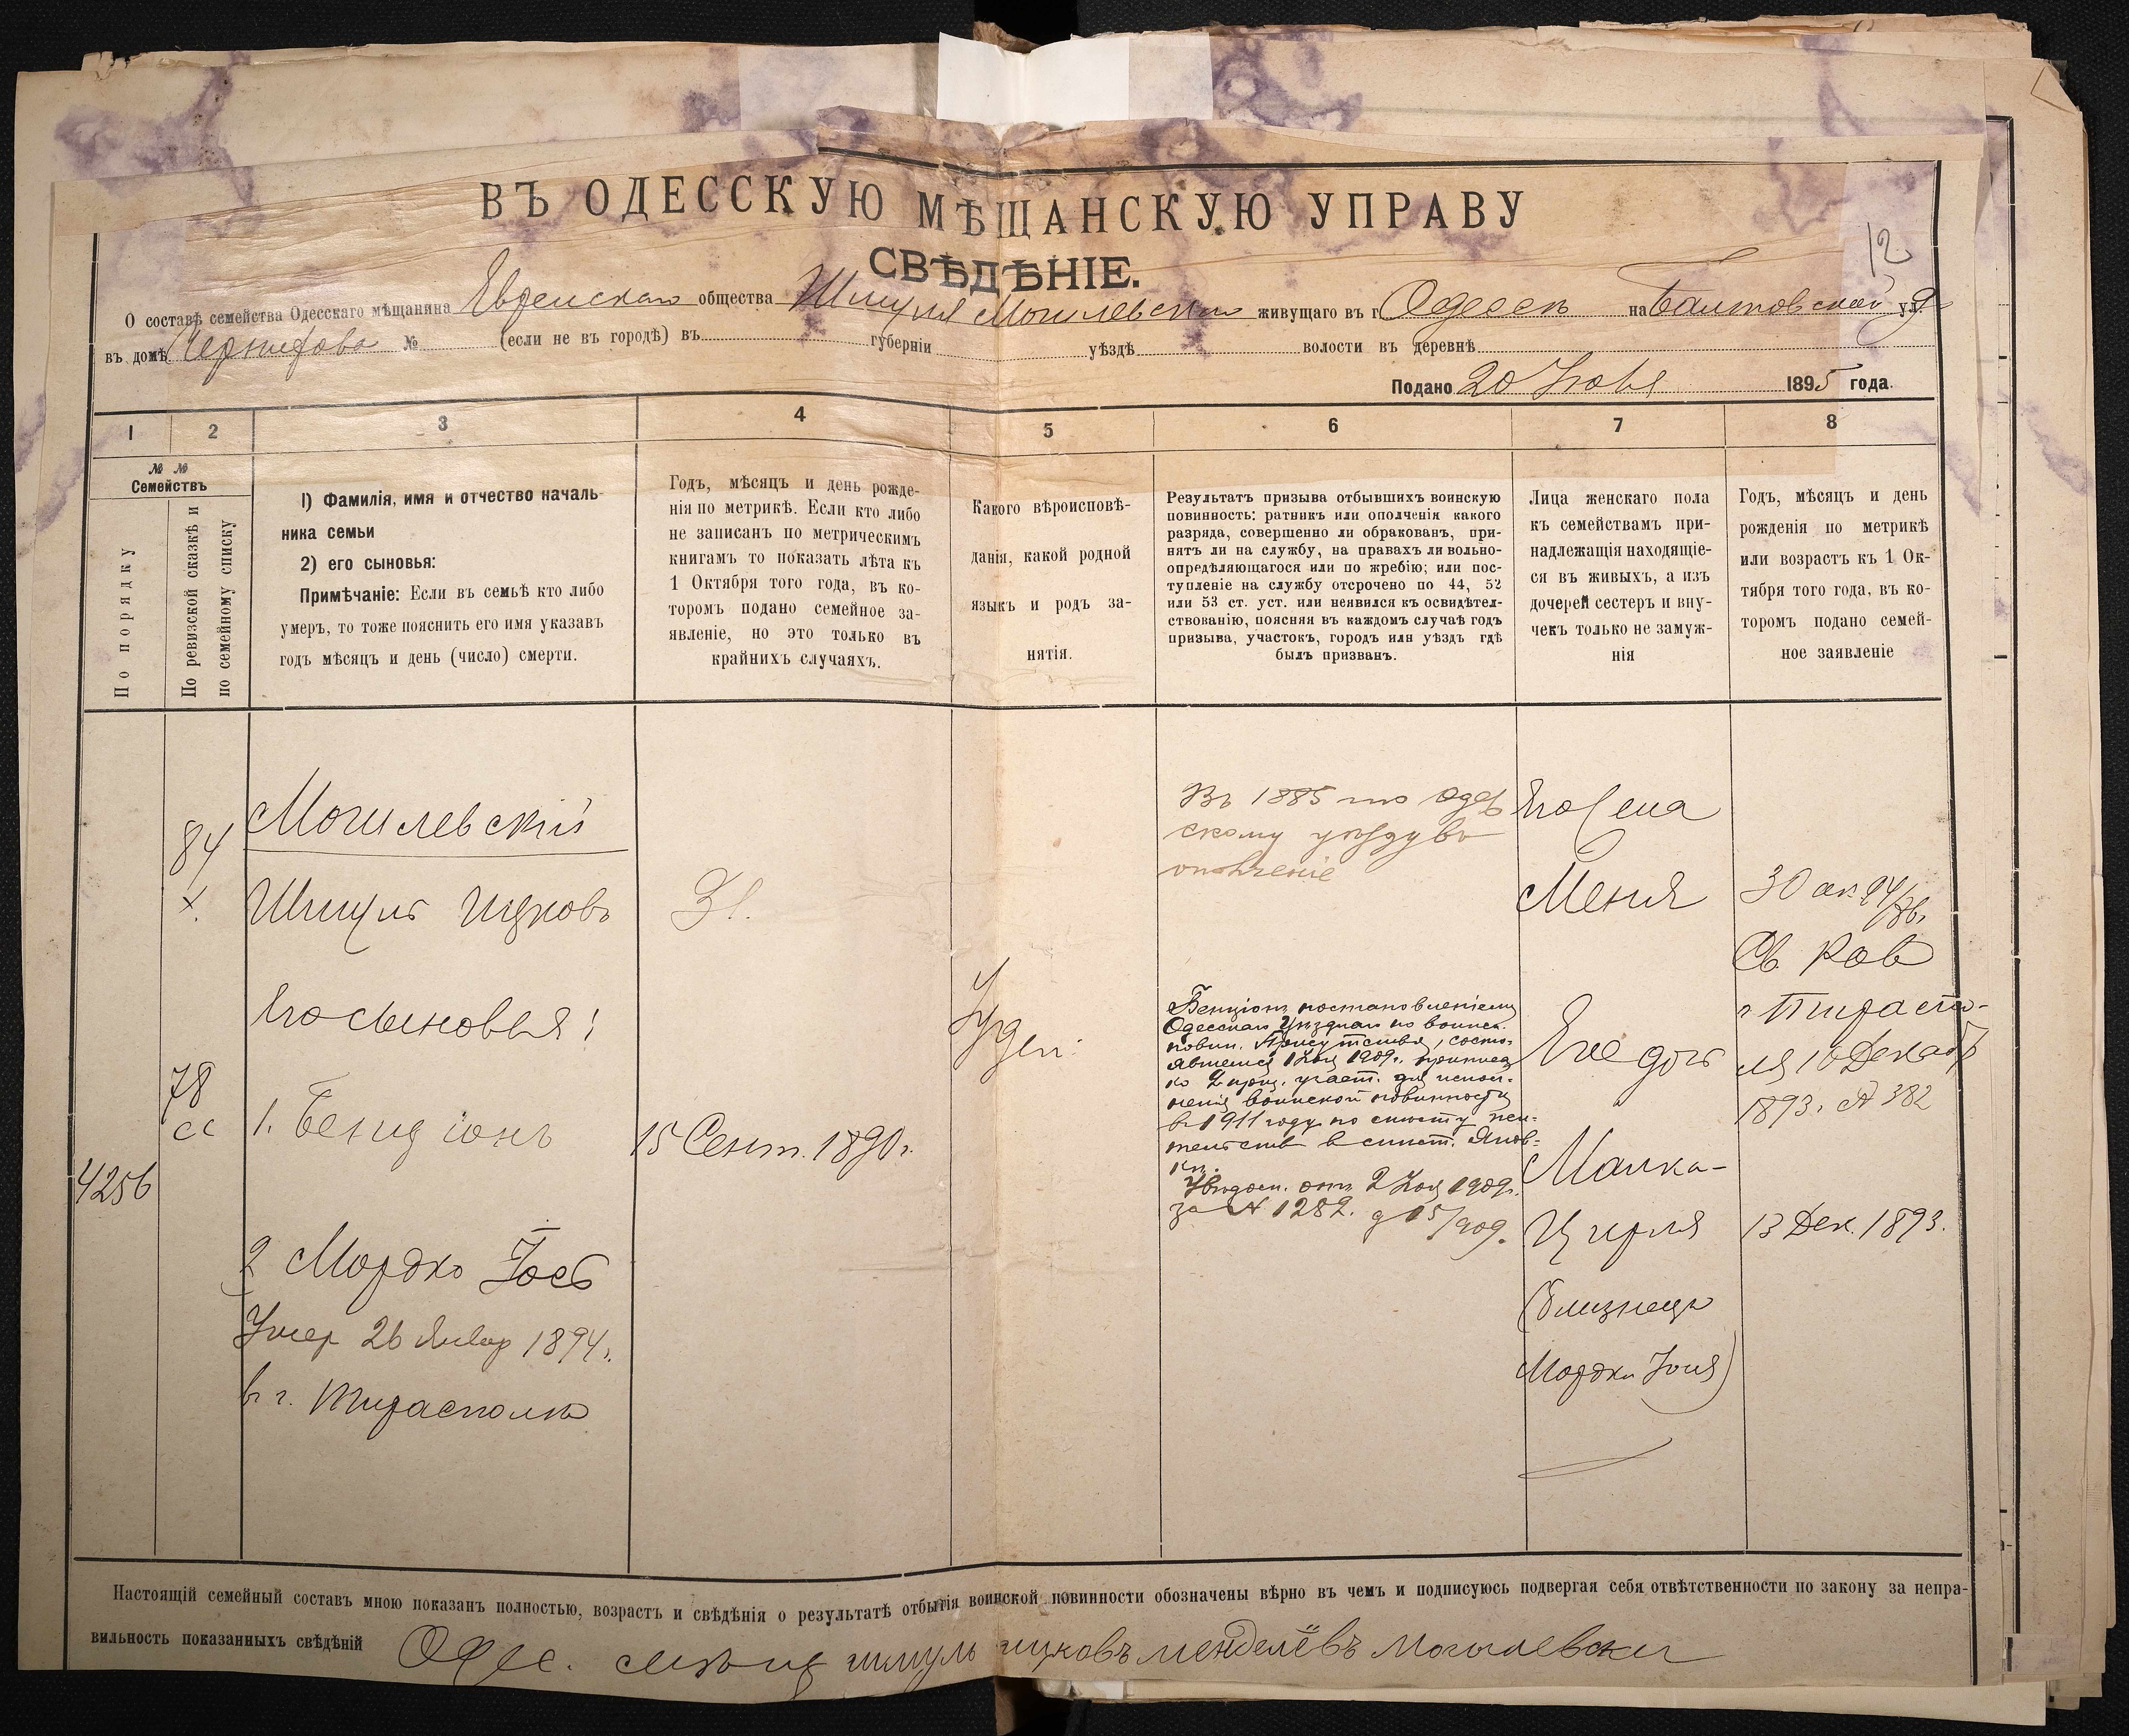 12
ВЪ ОДЕССКУЮ МѢЩАНСКУЮ УПРАВУ
СВѢДѢНІЕ.
О составѣ семейства Одесскаго мѣщанина Еврейскаго общества Шмуля Могилевскаго живущаго въ г. Одессѣ на Балтовской ул.
въ домѣ № (если не въ городѣ) въ губерніи уѣздѣ волости въ деревнѣ
Подано 20 1895 года.
1 2 3 4 5 6 7 8
№ № Семействъ
По порядку
По ревизской сказкѣ и
по семейному списку
1) Фамилія, имя и отчество началь-
ника семьи
2) его сыновья:
Примѣчаніе: Если въ семьѣ кто либо
умеръ, то тоже пояснить его имя указавъ
годъ мѣсяцъ и день (число) смерти.
Годъ, мѣсяцъ и день рожде-
нія по метрикѣ. Если кто либо
не записанъ по метрическимъ
книгамъ то показать лѣта къ
1 Октября того года, въ ко-
торомъ подано семейное за-
явленіе, но это только въ
крайнихъ случаяхъ.
Какого вѣроисповѣ-
данія, какой родной
языкъ и родъ за-
нятія.
Результатъ призыва отбывшихъ воинскую
повинность: ратникъ или ополченія какого
разряда, совершенно ли обракованъ, при-
нятъ ли на службу, на правахъ ли вольно-
опредѣляющагося или по жребію; или пос-
тупленіе на службу отсрочено по 44, 52
или 53 ст. уст. или неявился къ освидѣтел-
ствованію, поясняя въ каждомъ случаѣ годъ
призыва, участокъ, городъ или уѣздъ гдѣ
былъ призванъ.
Лица женскаго пола
къ семействамъ при-
надлежащія находящіе-
ся въ живыхъ, а изъ
дочерей сестеръ и вну-
чекъ только не замуж-
нія
Годъ, мѣсяцъ и день
рожденія по метрикѣ
или возрастъ къ 1 Ок-
тября того года, въ ко-
торомъ подано семей-
ное заявленіе
84
78
4256
Могилевскій
Шмуль Ицковъ
Его сыновья:
1. Бенціонъ
2 Мордко Іось
Умер 26 Январ 1894 г.
в г. Тирасполѣ
31.
15 Сент. 1890 г.
Іудей.
Въ 1885 по Одес
скому уѣзду въ
ополченіе
Бенціонъ постановленіемъ
Одесскаго Уѣзднаго по воинск.
повин. Присутствія, состо-
явшемся 1909 г.
ко 2 приз. участ. для испол-
ненія воинской повинности
в 1911 году по
Увѣдом. отъ 2 1909 г.
за № 1282.
Его жена
Меня
Его дочь
Малка-
Цирля
(близнецъ
Мордки Іося)
30
Св. Рав
г. Тираспо-
ля 16 Декабр
1893 г. № 382
13 Дек. 1893.
Настоящій семейный составъ мною показанъ полностью, возрастъ и свѣдѣнія о результатѣ отбытія воинской повинности обозначены вѣрно въ чемъ и подписуюсь подвергая себя отвѣтственности по закону за непра-
вильность показанныхъ свѣдѣній Одес. мѣщ шмуль ицковъ менделёвъ могилевски